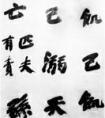 飢己飢
己溺天
亡匹夫
有責孫